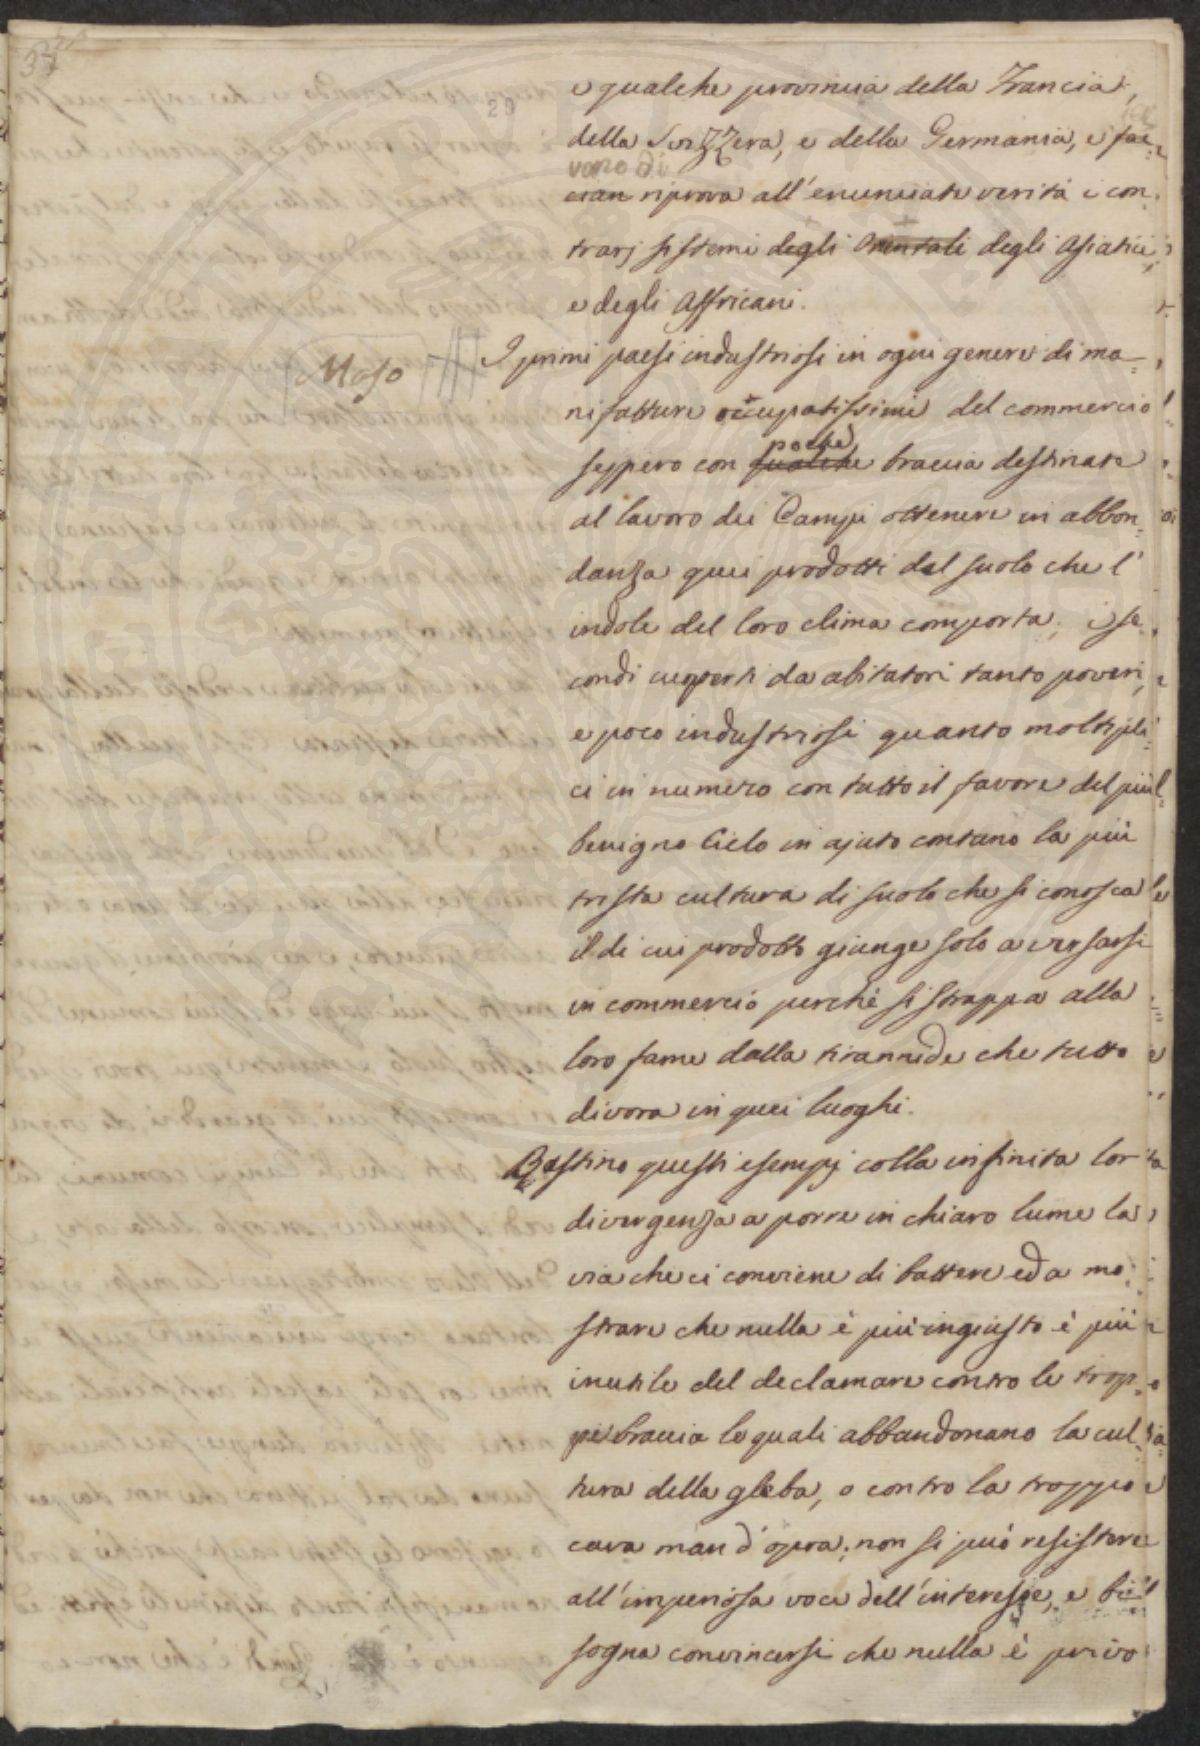 20
e qualche provincia della Francia,
della Svizzera, e della Germania, e fac=
vano di
cian riprova all'enunciate verità i con
trarj sistemi degli Orientali degli Asiatici,
e degli Affricani.
I primi paesi industriosi in ogni genere di ma=
nifatture occupatissimi del commercio
poche
seppero con qualche braccia destinate
al lavoro dei Campi ottenere in abbon=
danza quei prodotti del suolo che l'
indole del loro clima comporta; i se
condi coperti da abitatori tanto poveri,
e poco industriosi quanto moltipli=
ci in numero con tutto il favore del più
benigno Cielo in ajuto contano la più
trista cultura di suolo che si conosca
il di cui prodotto giunge solo a versarsi
in commercio perchè si strappa alla
loro fame dalla tirannide che tutto
divora in quei luoghi.
Bastino questi esempj colla infinita lor
divergenza a porre in chiaro lume la
via che ci conviene di battere ed a mo
strare che nulla è più ingiusto è più
inutile del declamare contro le trop=
pe braccia le quali abbandonano la cul=
tura della gleba, o contro la troppo
cara man d'opera; non si può resistere
all'imperiosa voce dell'interesse, e bi
sogna convincersi che nulla è privo